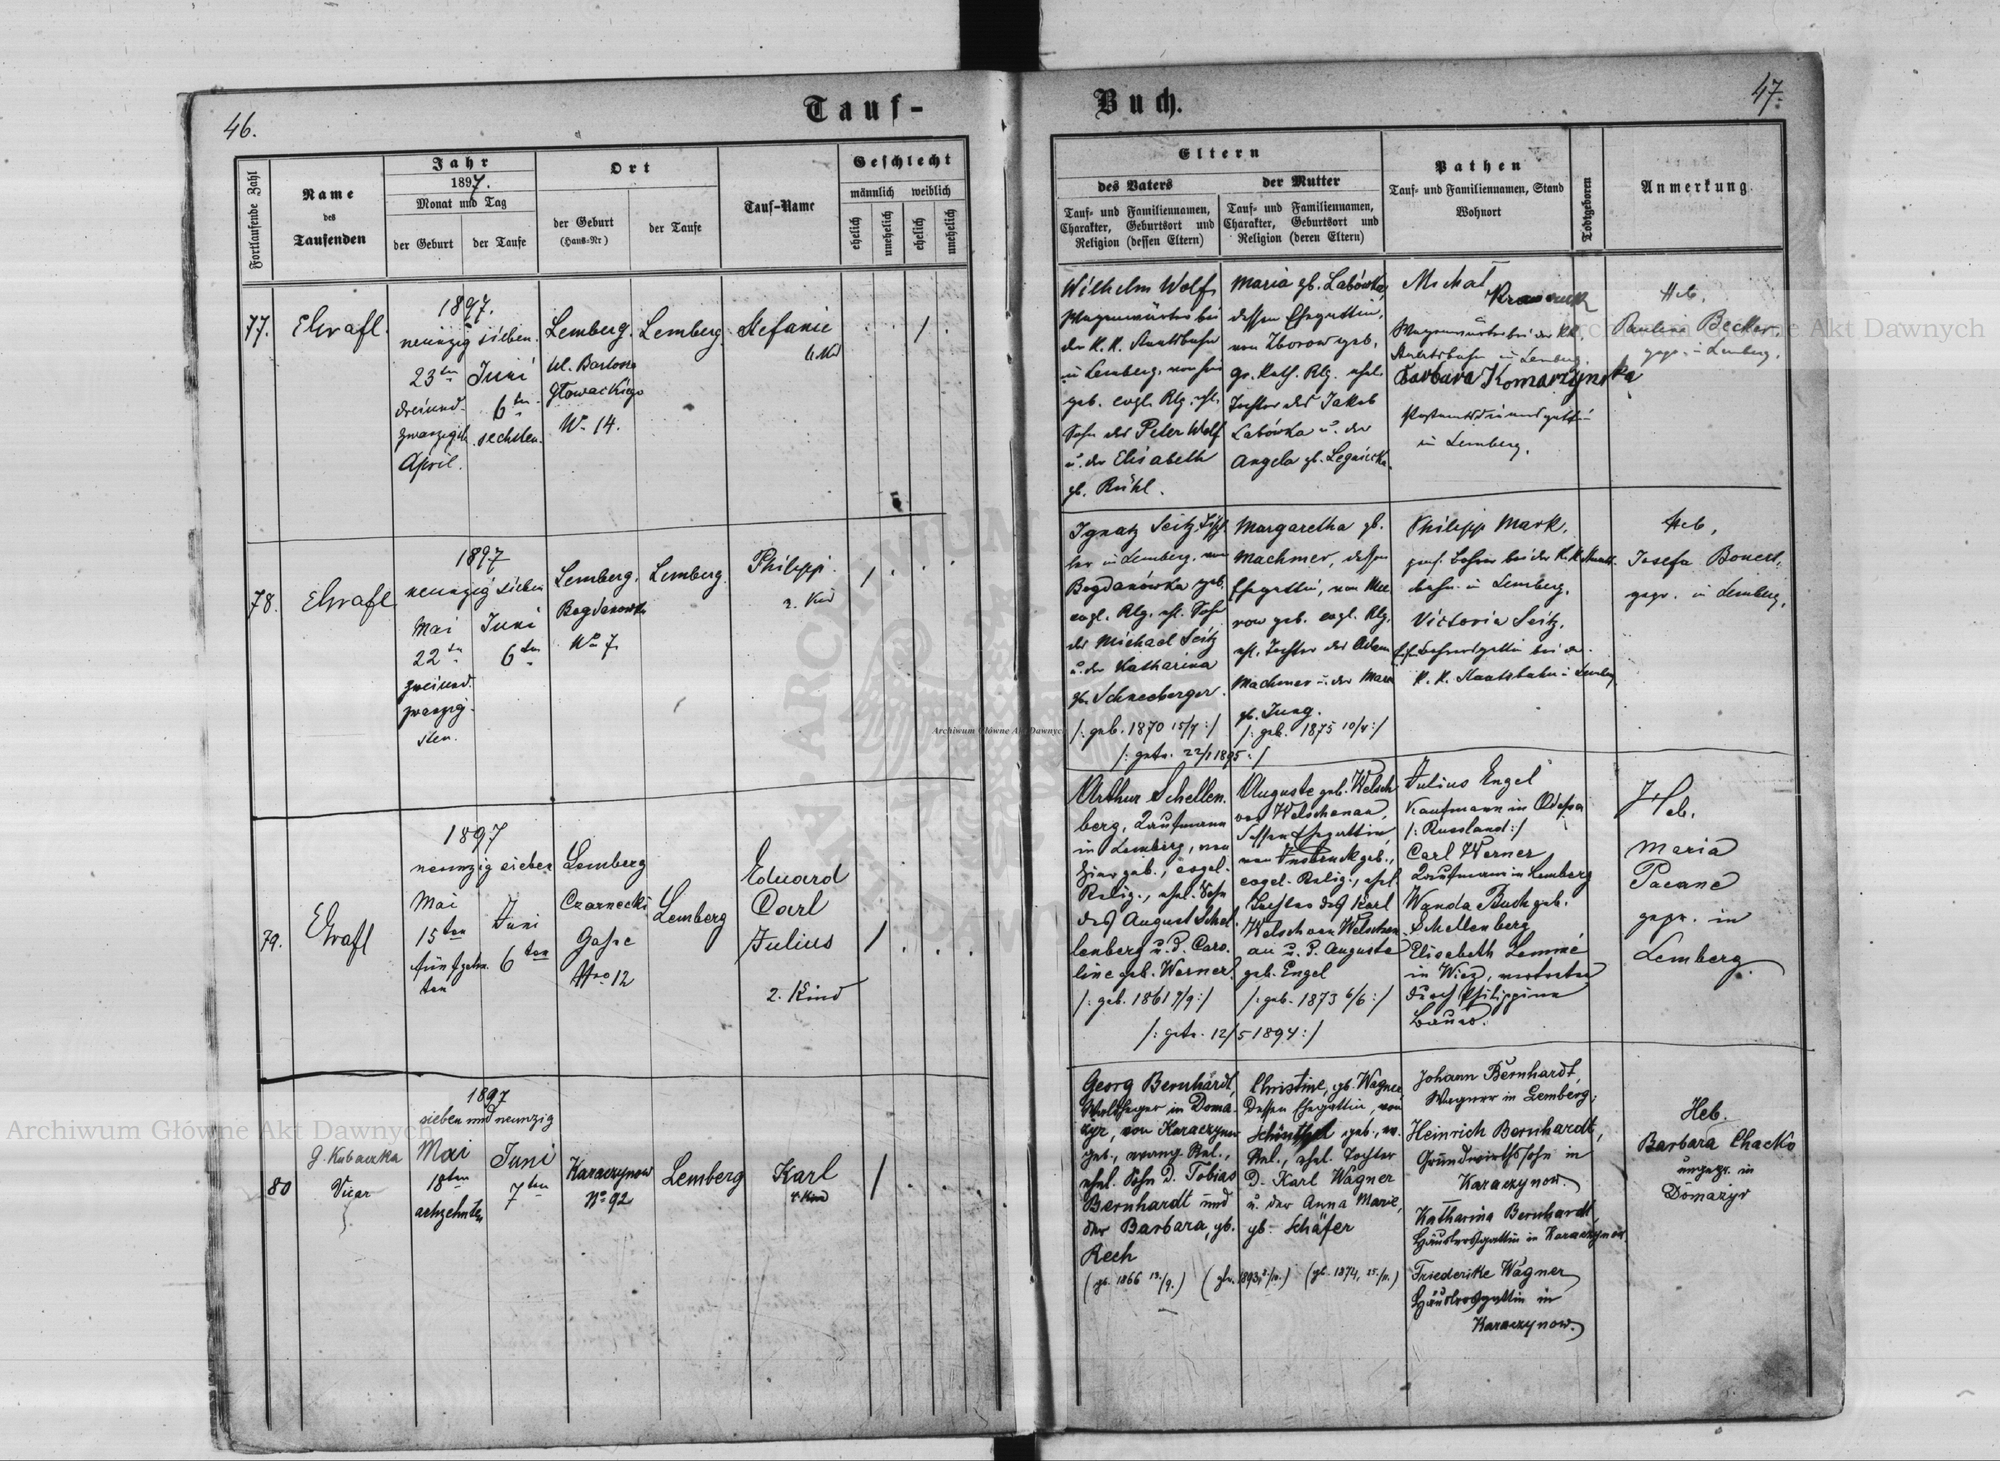 46.
Tauf-
Buch.
47.
Fortlaufende Zahl
Name
des
Taufenden
Jahr
1897.
Monat und Tag
der Geburt
der Taufe
Ort
der Geburt
(Haus-Nr)
der Taufe
Tauf-Name
Geschlecht
männlich
weiblich
ehelich
unehelich
ehelich
unehelich
Eltern
des Vaters
Tauf- und Familiennamen,
Charakter, Geburtsort und
Religion (dessen Eltern)
der Mutter
Tauf- und Familiennamen,
Charakter, Geburtsort und
Religion (deren Eltern)
Pathen
Tauf- und Familiennamen, Stand
Wohnort
Todtgeboren
Anmerkung.
77.
1897.
neunzig sieben.
23ten
dreiund-
zwanzigst
April.
Juni
6ten
sechsten.
Lemberg.
ul. Bartosza
Głowackiego
No 14.
Lemberg.
Stefanie
1
Wilhelm Wolf,
der k. k. Staatsbahn
in Lemberg,
geb. evgl. Rlg. ehl.
Sohn des Peter Wolf
u. der Elisabeth
gb. Rühl.
Maria gb. Labówka,
dessen Ehegattin,
von Zborow geb.
gr. kath. Rlg. ehel.
Tochter des Jakob
Labówka u. der
Angela gb.
Michał
Wagenwärter bei der k.k.
Staatsbahn in Lemberg.
Barbara Komarzyńska
in Lemberg.
Heb.
Pauline Becker,
gepr. in Lemberg.
78.
1897
neunzig sieben
Mai
22ten
zweiund-
zwanzig-
sten.
Juni
6ten
Lemberg.
Bogdanowka
No 7.
Lemberg.
Philipp.
2. Kind
1
Ignatz Seitz,
in Lemberg, von
Bogdanówka geb.
evgl. Rlg. ehl. Sohn
des Michael Seitz
u. der Katharina
gb. Schneeberger.
/: geb. 1870 15/7 :/
Margaretha gb.
Machmer, dessen
Ehegattin,
geb. evgl. Rlg.
ehl. Tochter des Adam
Machmer u. der
gb. Jung.
/: geb. 1875 10/4 :/
/: getr. 22/1 1895 :/
Philipp Mark,
bei der k. k. Staats-
bahn in Lemberg.
Victoria Seitz,
bei der
k. k. Staatsbahn in Lemberg
Heb.
Josefa Bonert,
gepr. in Lemberg.
79.
1897
neunzig sieben
Mai
15ten
fünfzehn-
ten
Juni
6ten
Lemberg
Czarnecki
Gasse
Nro 12
Lemberg
Eduard
Carl
Julius
2. Kind
1
Arthur Schellen-
berg, Kaufmann
in Lemberg, von
hier geb., evgel.
Relig., ehel. Sohn
des August Schel-
lenberg u. d. Caro-
line geb. Werner.
/: geb. 1861 9/9 :/
Auguste geb. Welsch
von Welschenau,
dessen Ehegattin,
von Insbruck geb.,
evgel. Relig., ehel.
Tochter des Karl
Welsch von Welschen-
au u. d. Auguste
geb. Engel
/: geb. 1873 6/6 :/
/: getr. 12/5 1894 :/
Julius Engel
Kaufmann in Odessa
/: Russland :/
Carl Werner,
Kaufmann in Lemberg
Wanda Buch geb.
Schellenberg
Elisabeth Lemmé
in Wien, vertreten
durch Philippine
Bauer.
Heb.
Maria
Pacane
gepr. in
Lemberg.
80
G. Kubaczka
Vicar
1897
sieben und neunzig
Mai
18ten
achzehnten
Juni
7ten
Karaczynow
No 92
Lemberg
Karl
4. Kind
1
Georg Bernhardt,
Waldheger in Doma-
zyr, von Karaczynow
geb., evang. Rel.,
ehel. Sohn d. Tobias
Bernhardt und
der Barbara, gb.
Rech
(gb. 1866 13/9.)
Christine, gb. Wagner
Dessen Ehegattin, von
Schönthal geb., ev.
Rel., ehel. Tochter
d. Karl Wagner
u. der Anna Marie,
gb. Schäfer
Johann Bernhardt,
Wagner in Lemberg;
Heinrich Bernhardt,
Grundwirthssohn in
Karaczynow.
Katharina Bernhardt,
Häuslersgattin in Karaczynow
Friederike Wagner
Häuslersgattin in
Karaczynow.
Heb.
Barbara Chacko
ungepr. in
Domazyr
Archiwum Główne Akt Dawnych
Archiwum Główne Akt Dawnych
Archiwum Główne Akt Dawnych